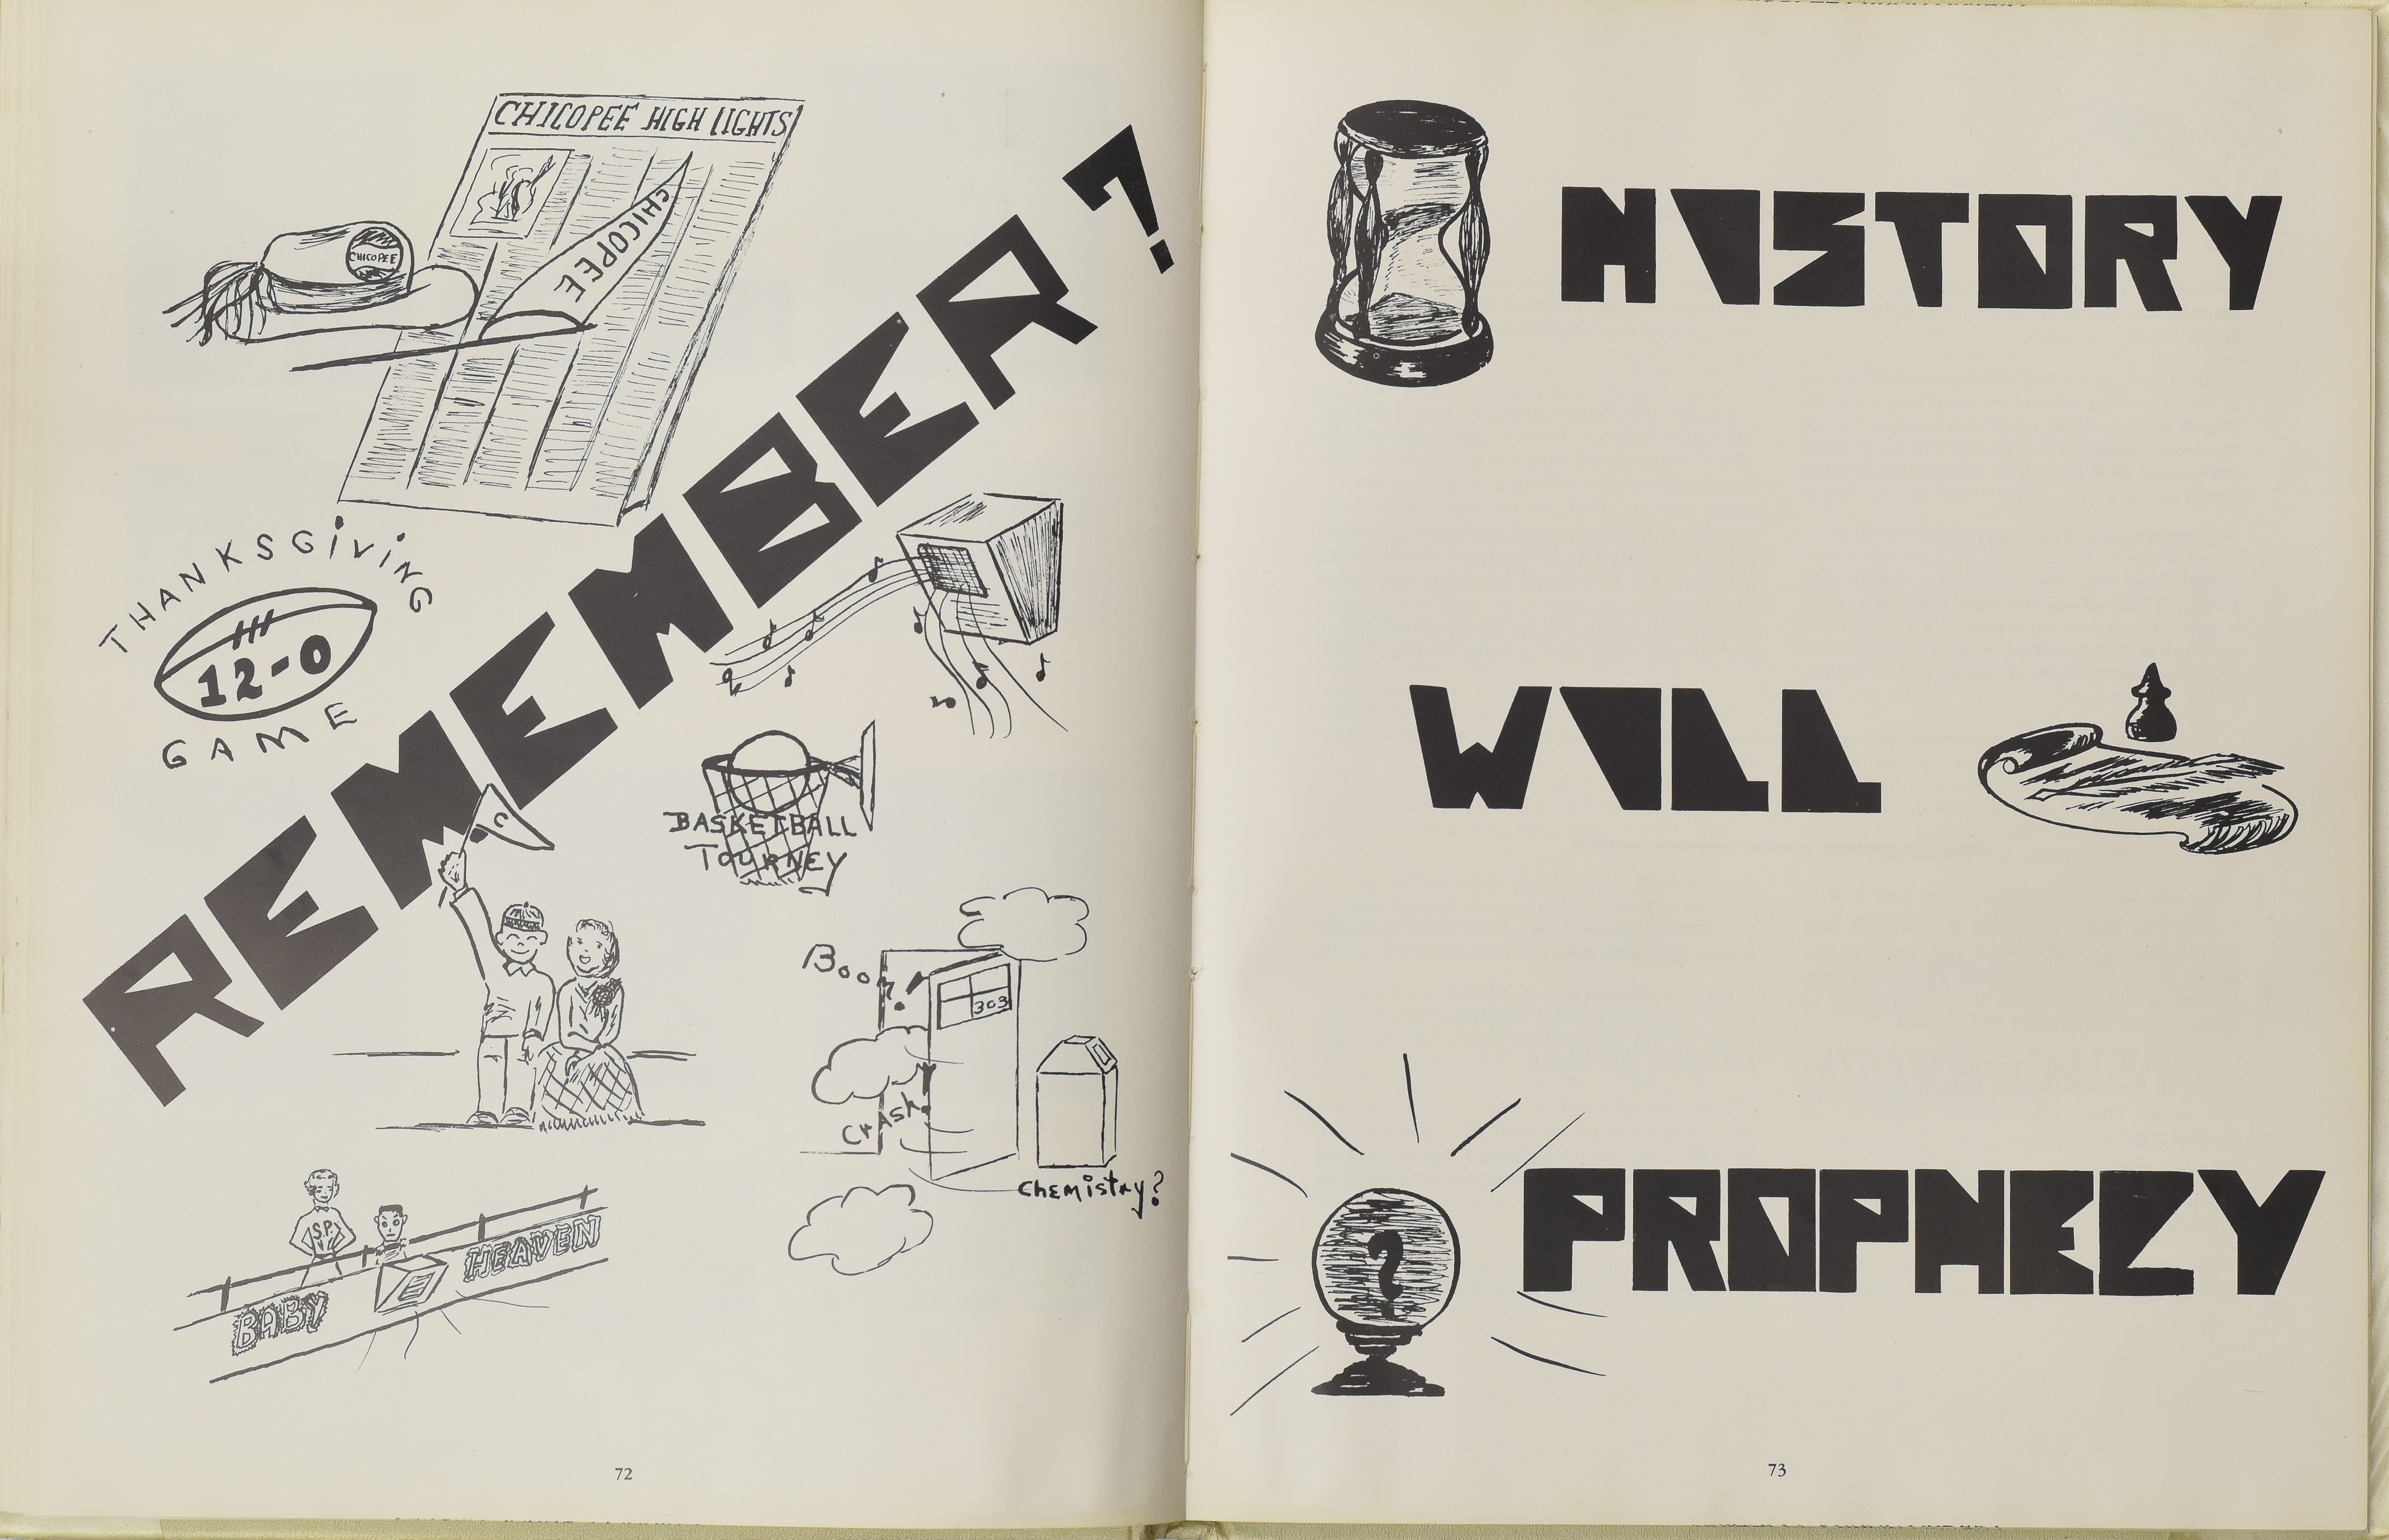 CHICOPEE HIGH LIGHTS
CHICOPEE
CHICOPEE
REMEMBER?
THANKSGiViNG
12-0
GAME
C
BASKETBALL
TOURNEY
Boom!
303
Crash!
Chemistry?
S.P.
BABY HEAVEN
72
HISTORY
WILL
?
PROPHECY
73